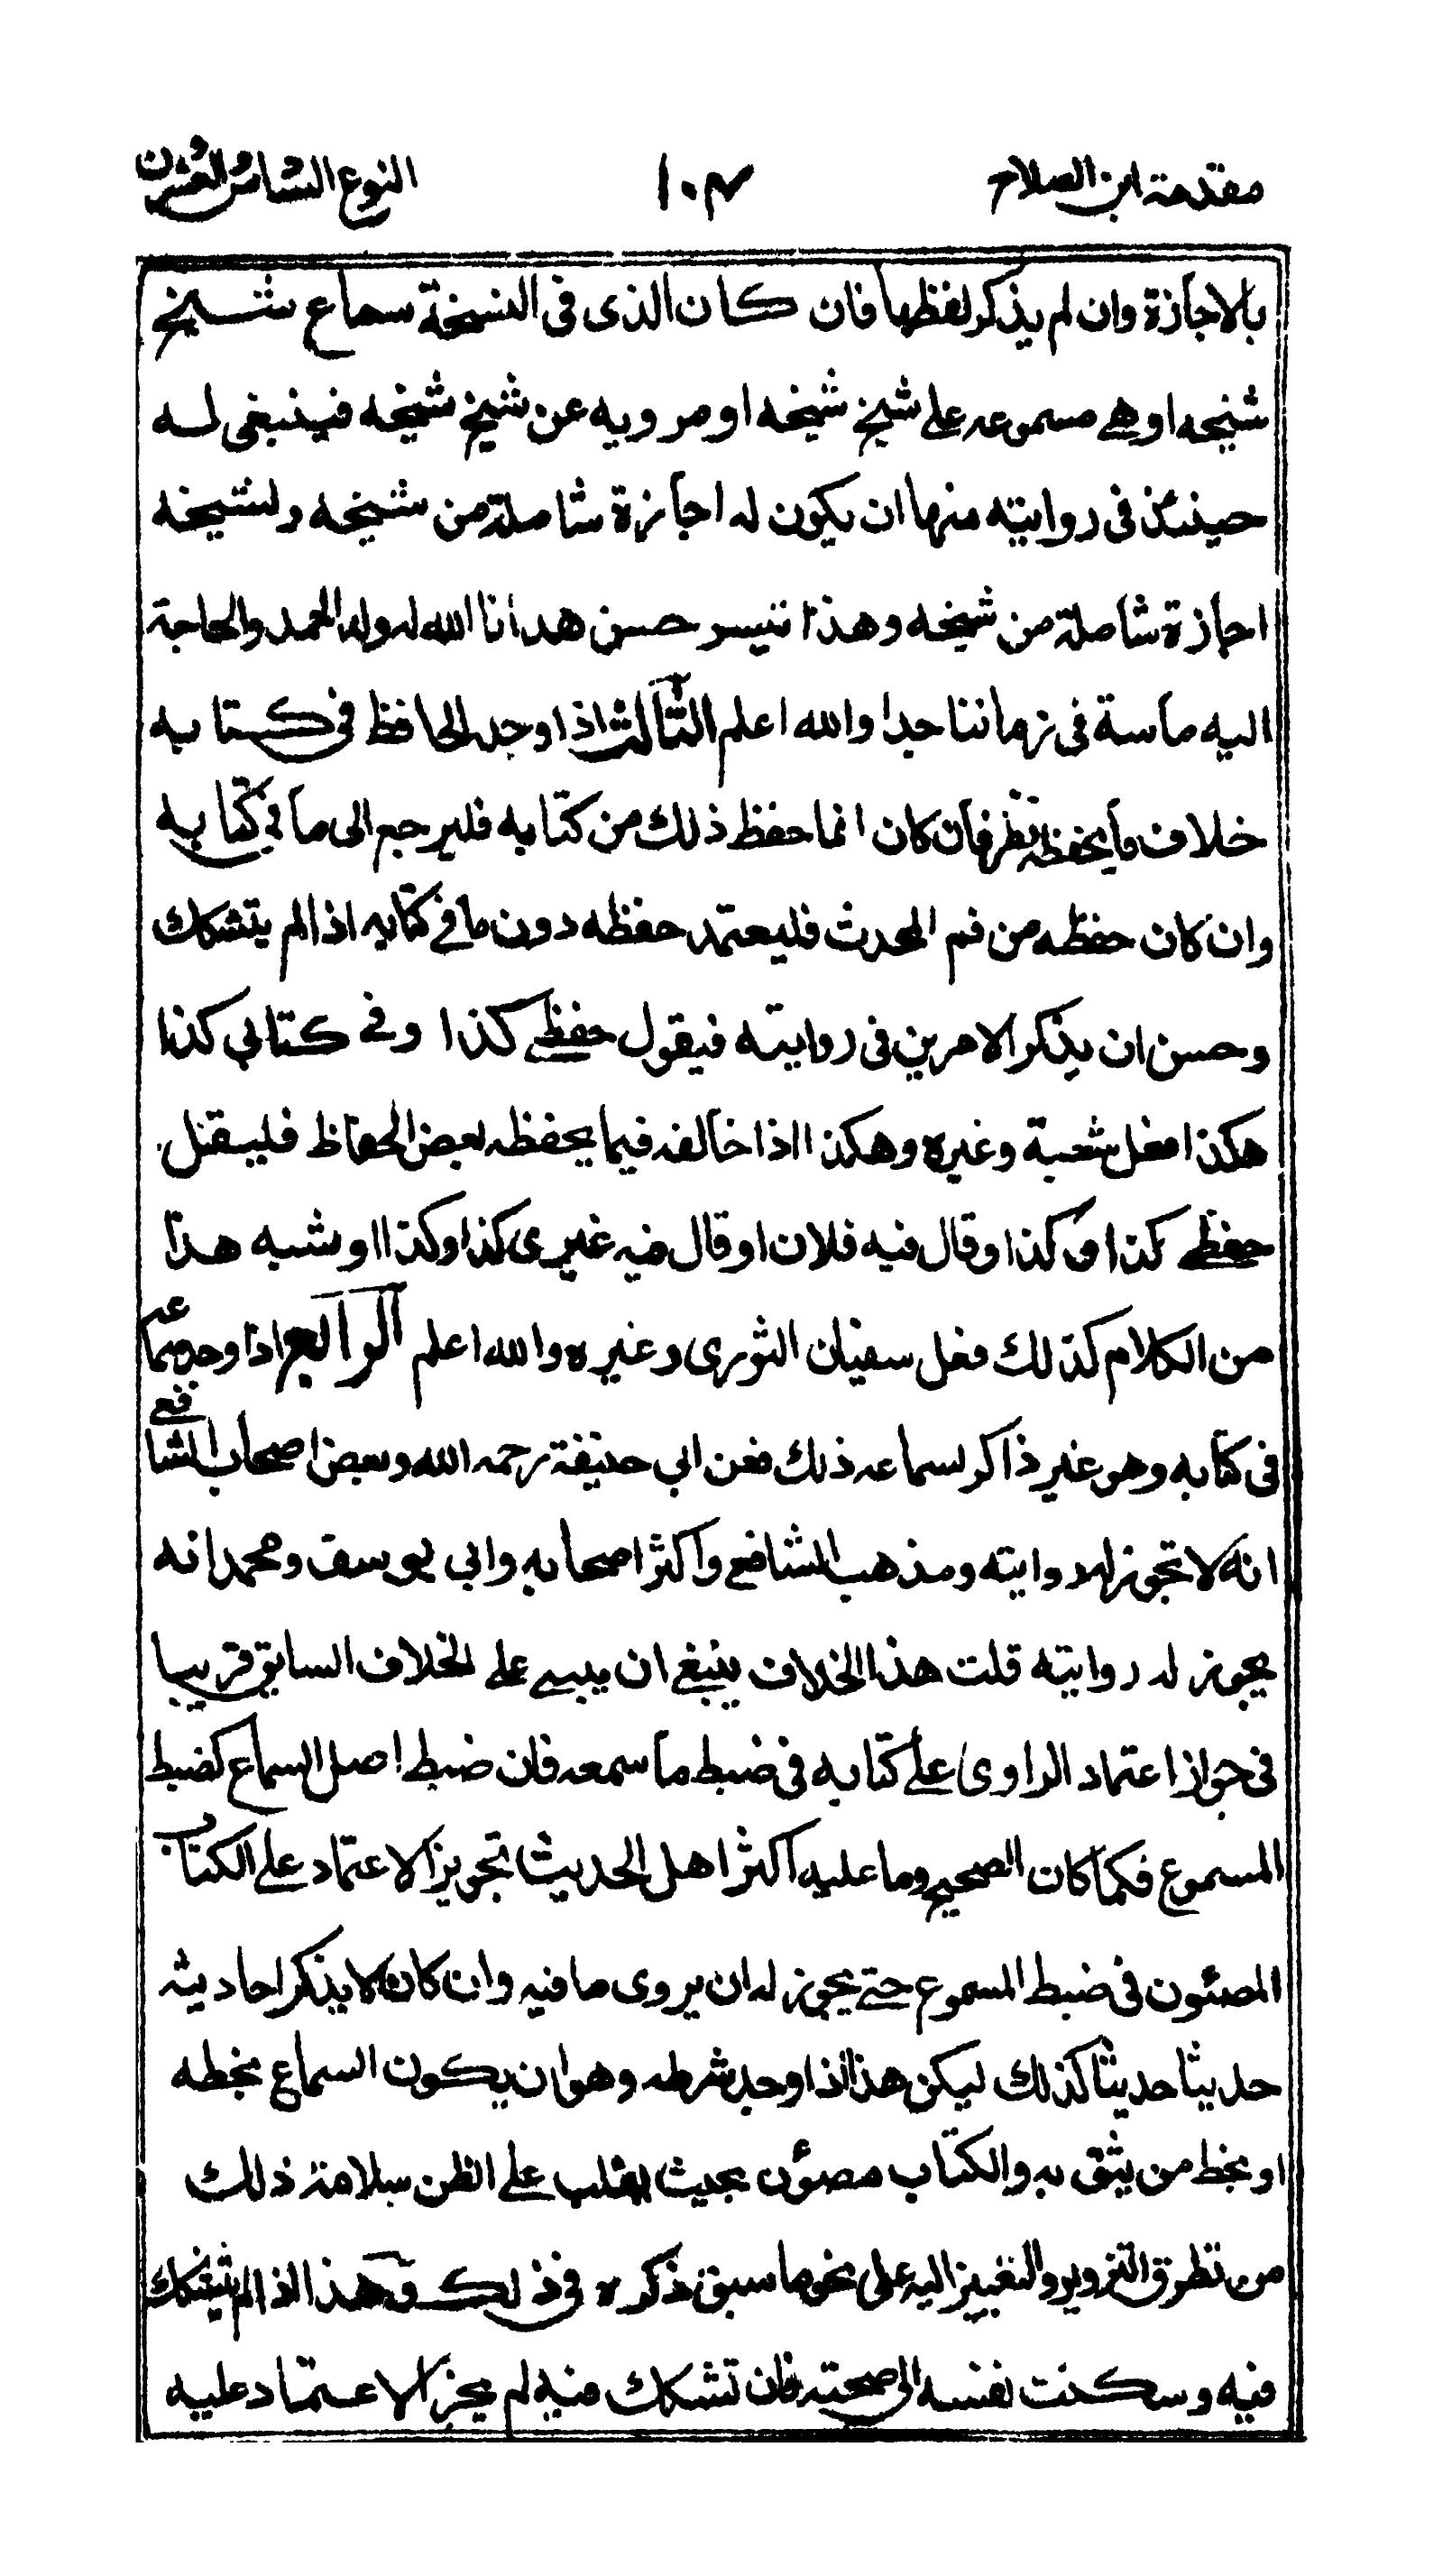 مقدمة ابن الصلاح ١٠٣ النوع السادس والعشرون
بالاجازة وان لم يذكر لفظها فان كان الذى فى النسخة سماع شيخ
شيخه او هي مسموعه على شيخ شيخه او مرويه عن شيخ شيخه فينبغى له
حينئذ فى روايته منها ان يكون له اجازة شاملة من شيخه ولشيخه
اجازة شاملة من شيخه وهذا تيسير حسن هدانا الله له وله الحمد والحاجة
اليه ماسة فى زماننا جدا والله اعلم الثالث اذا وجد الحافظ فى كتابه
خلاف ما يحفظه نظر فان كان انما حفظ ذلك من كتابه فليرجع الى ما فى كتابه
وان كان حفظه من فم المحدث فليعتمد حفظه دون ما فى كتابه اذا لم يتشكك
وحسن ان يذكر الامرين فى روايته فيقول حفظي كذا وفي كتابي كذا
هكذا فعل شعبة وغيره وهكذا اذا خالفه فيما يحفظه بعض الحفاظ فليقل
حفظي كذا وكذا وقال فيه فلان او قال فيه غيرى كذا وكذا او شبه هذا
من الكلام كذلك فعل سفيان الثورى وغيره والله اعلم الرابع اذا وجد سماعه
فى كتابه وهو غير ذاكر لسماعه ذلك فعن ابي حنيفة رحمه الله وبعض اصحاب الشافعي
انه لا تجوز له روايته ومذهب الشافعي واكثر اصحابه وابي يوسف ومحمد انه
يجوز له روايته قلت هذا الخلاف ينبغي ان يبني على الخلاف السابق قريبا
فى جواز اعتماد الراوى على كتابه فى ضبط ما سمعه فان ضبط اصل السماع كضبط
المسموع فكما كان الصحيح وما عليه اكثر اهل الحديث تجويز الاعتماد على الكتاب
المصئون فى ضبط المسموع حتى يجوز له ان يروى ما فيه وان كان لا يذكر احاديثه
حديثا حديثا كذلك ليكن هذا اذا وجد شرطه وهو ان يكون السماع بخطه
او بخط من يثق به والكتاب مصئون بحيث يغلب على الظن سلامة ذلك
من تطرق التزوير والتغيير اليه على نحو ما سبق ذكره فى ذلك وهذا اذا لم يتشكك
فيه وسكنت نفسه الى صحته فان تشكك فيه لم يجز الاعتماد عليه